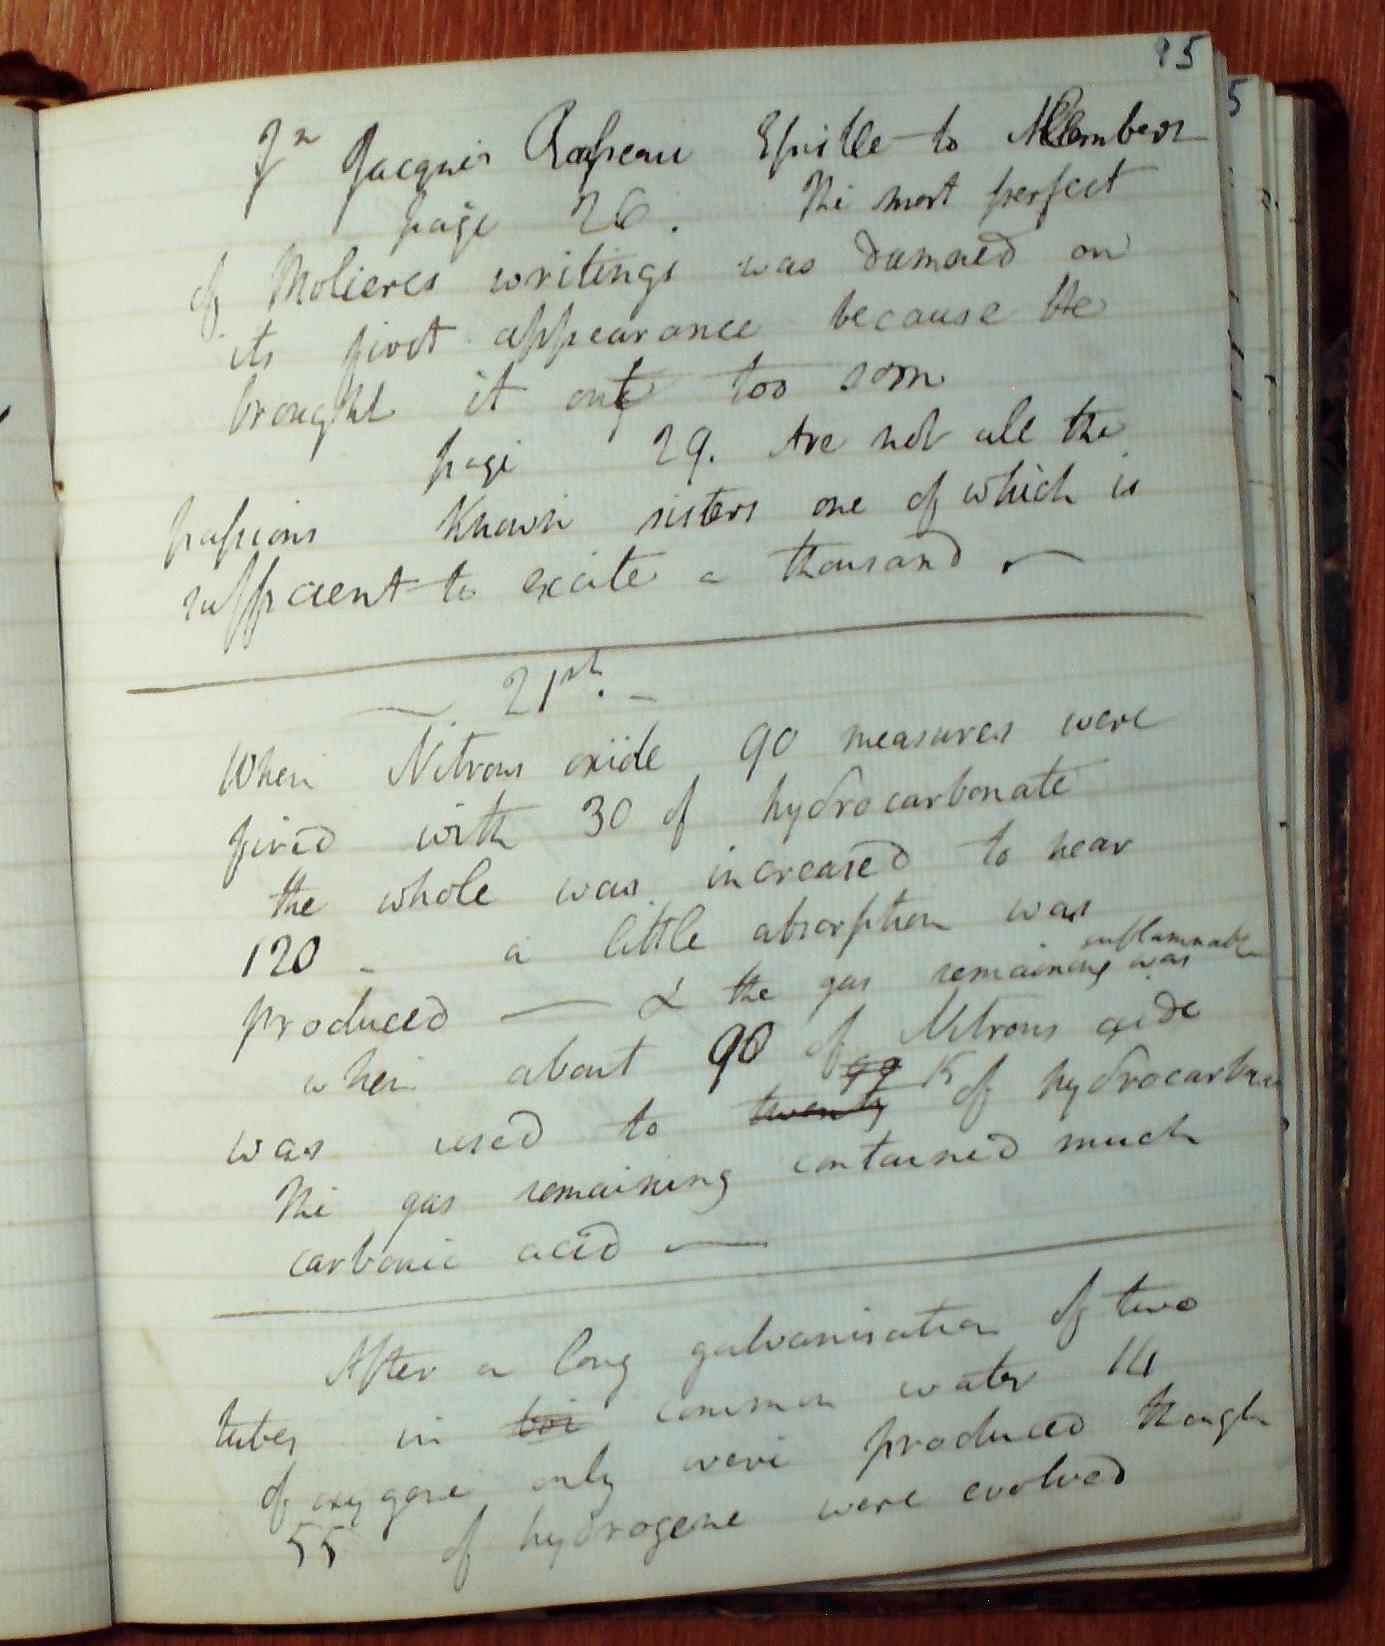 95
5
Jn Jacques Rousseau Epistle to Allembert
page 26. The most perfect
of Molieres writings was damned on
its first appearance because He
brought it out too soon
page 29. Are not all the
passions Known sisters one of which is
sufficient to excite a thousand
21st.
When Nitrous oxide 90 measures were
fired with 30 of hydrocarbonate
the whole was increased to near
120 - a little absorption was
inflammable
produced — & the gas remaining was
when about 90 of Nitrous oxide
15
was used to twenty of hydrocarbon
The gas remaining contained much
carbonic acid —
After a long galvanisation of two
tubes in boi common water 14
of oxygene only were produced though
55 of hydrogene were evolved